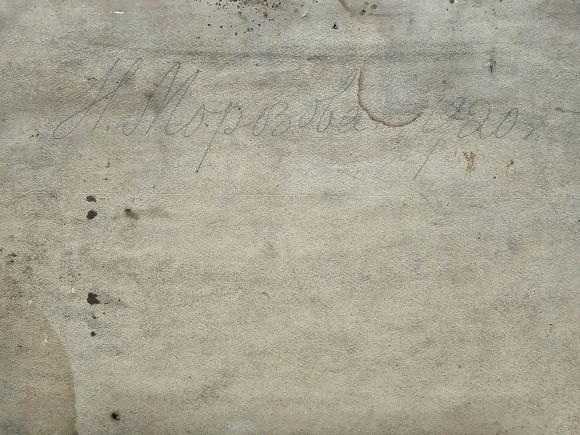 Н. Морозова 1920 г.